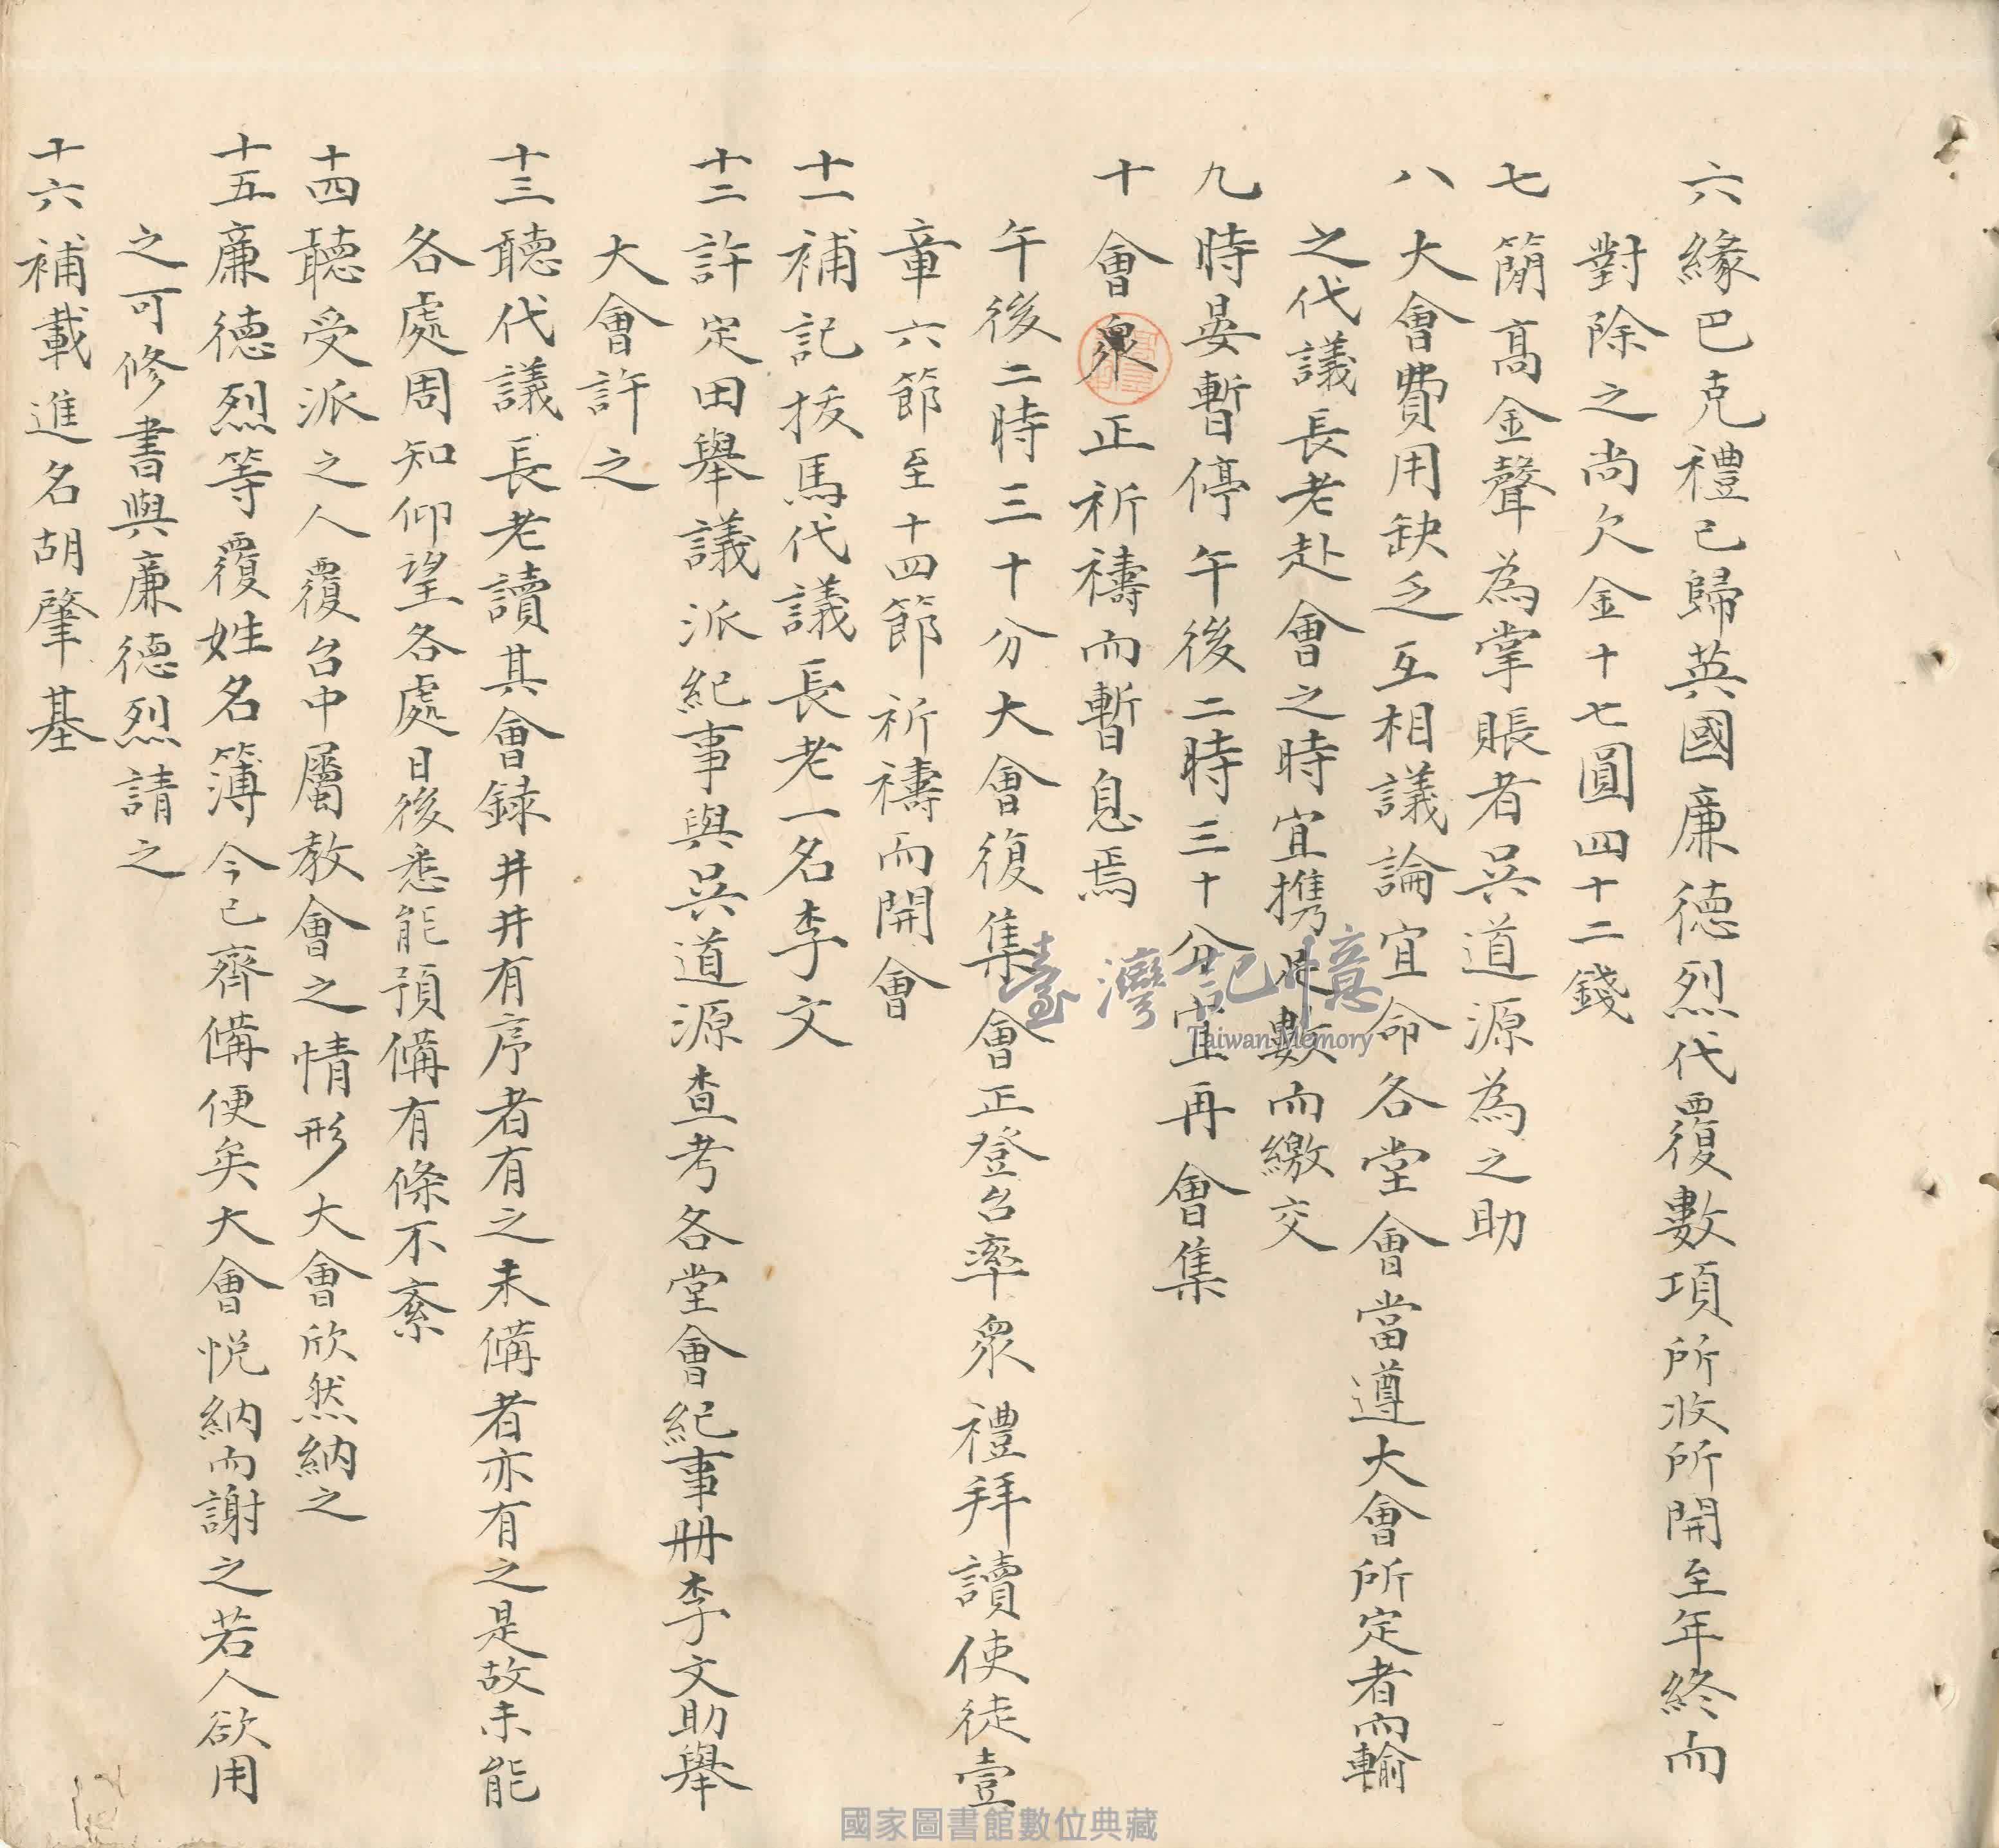 六緣巴克禮已歸英國廉德烈代覆數項所收所開至年終而
對除之尚欠金十七圓四十二錢
七簡高金聲為掌賬者吳道源為之助
八大會費用缺乏互相議論宜命各堂會當遵大會所定者而輸
之代議長老赴會之時宜携此數而繳交
九時晏暫停午後二時三十分宜再會集
十會衆正祈禱而暫息焉
午後二時三十分大會復集會正登台率衆禮拜讀使徒壹
章六節至十四節祈禱而開會
十一補記拔馬代議長老一名李文
十二許定田舉議派紀事與吳道源查考各堂會紀事冊李文助舉
大會許之
十三聽代議長老讀其會錄井井有序者有之未備者亦有之是故未能
各處周知仰望各處日後悉能預備有條不紊
十四聽受派之人覆台中屬教會之情形大會欣然納之
十五廉德烈等覆姓名簿今已齊備便矣大會悅納而謝之若人欲用
之可修書與廉德烈請之
十六補載進名胡肇基
臺灣記憶
Taiwan Memory
國家圖書館數位典藏